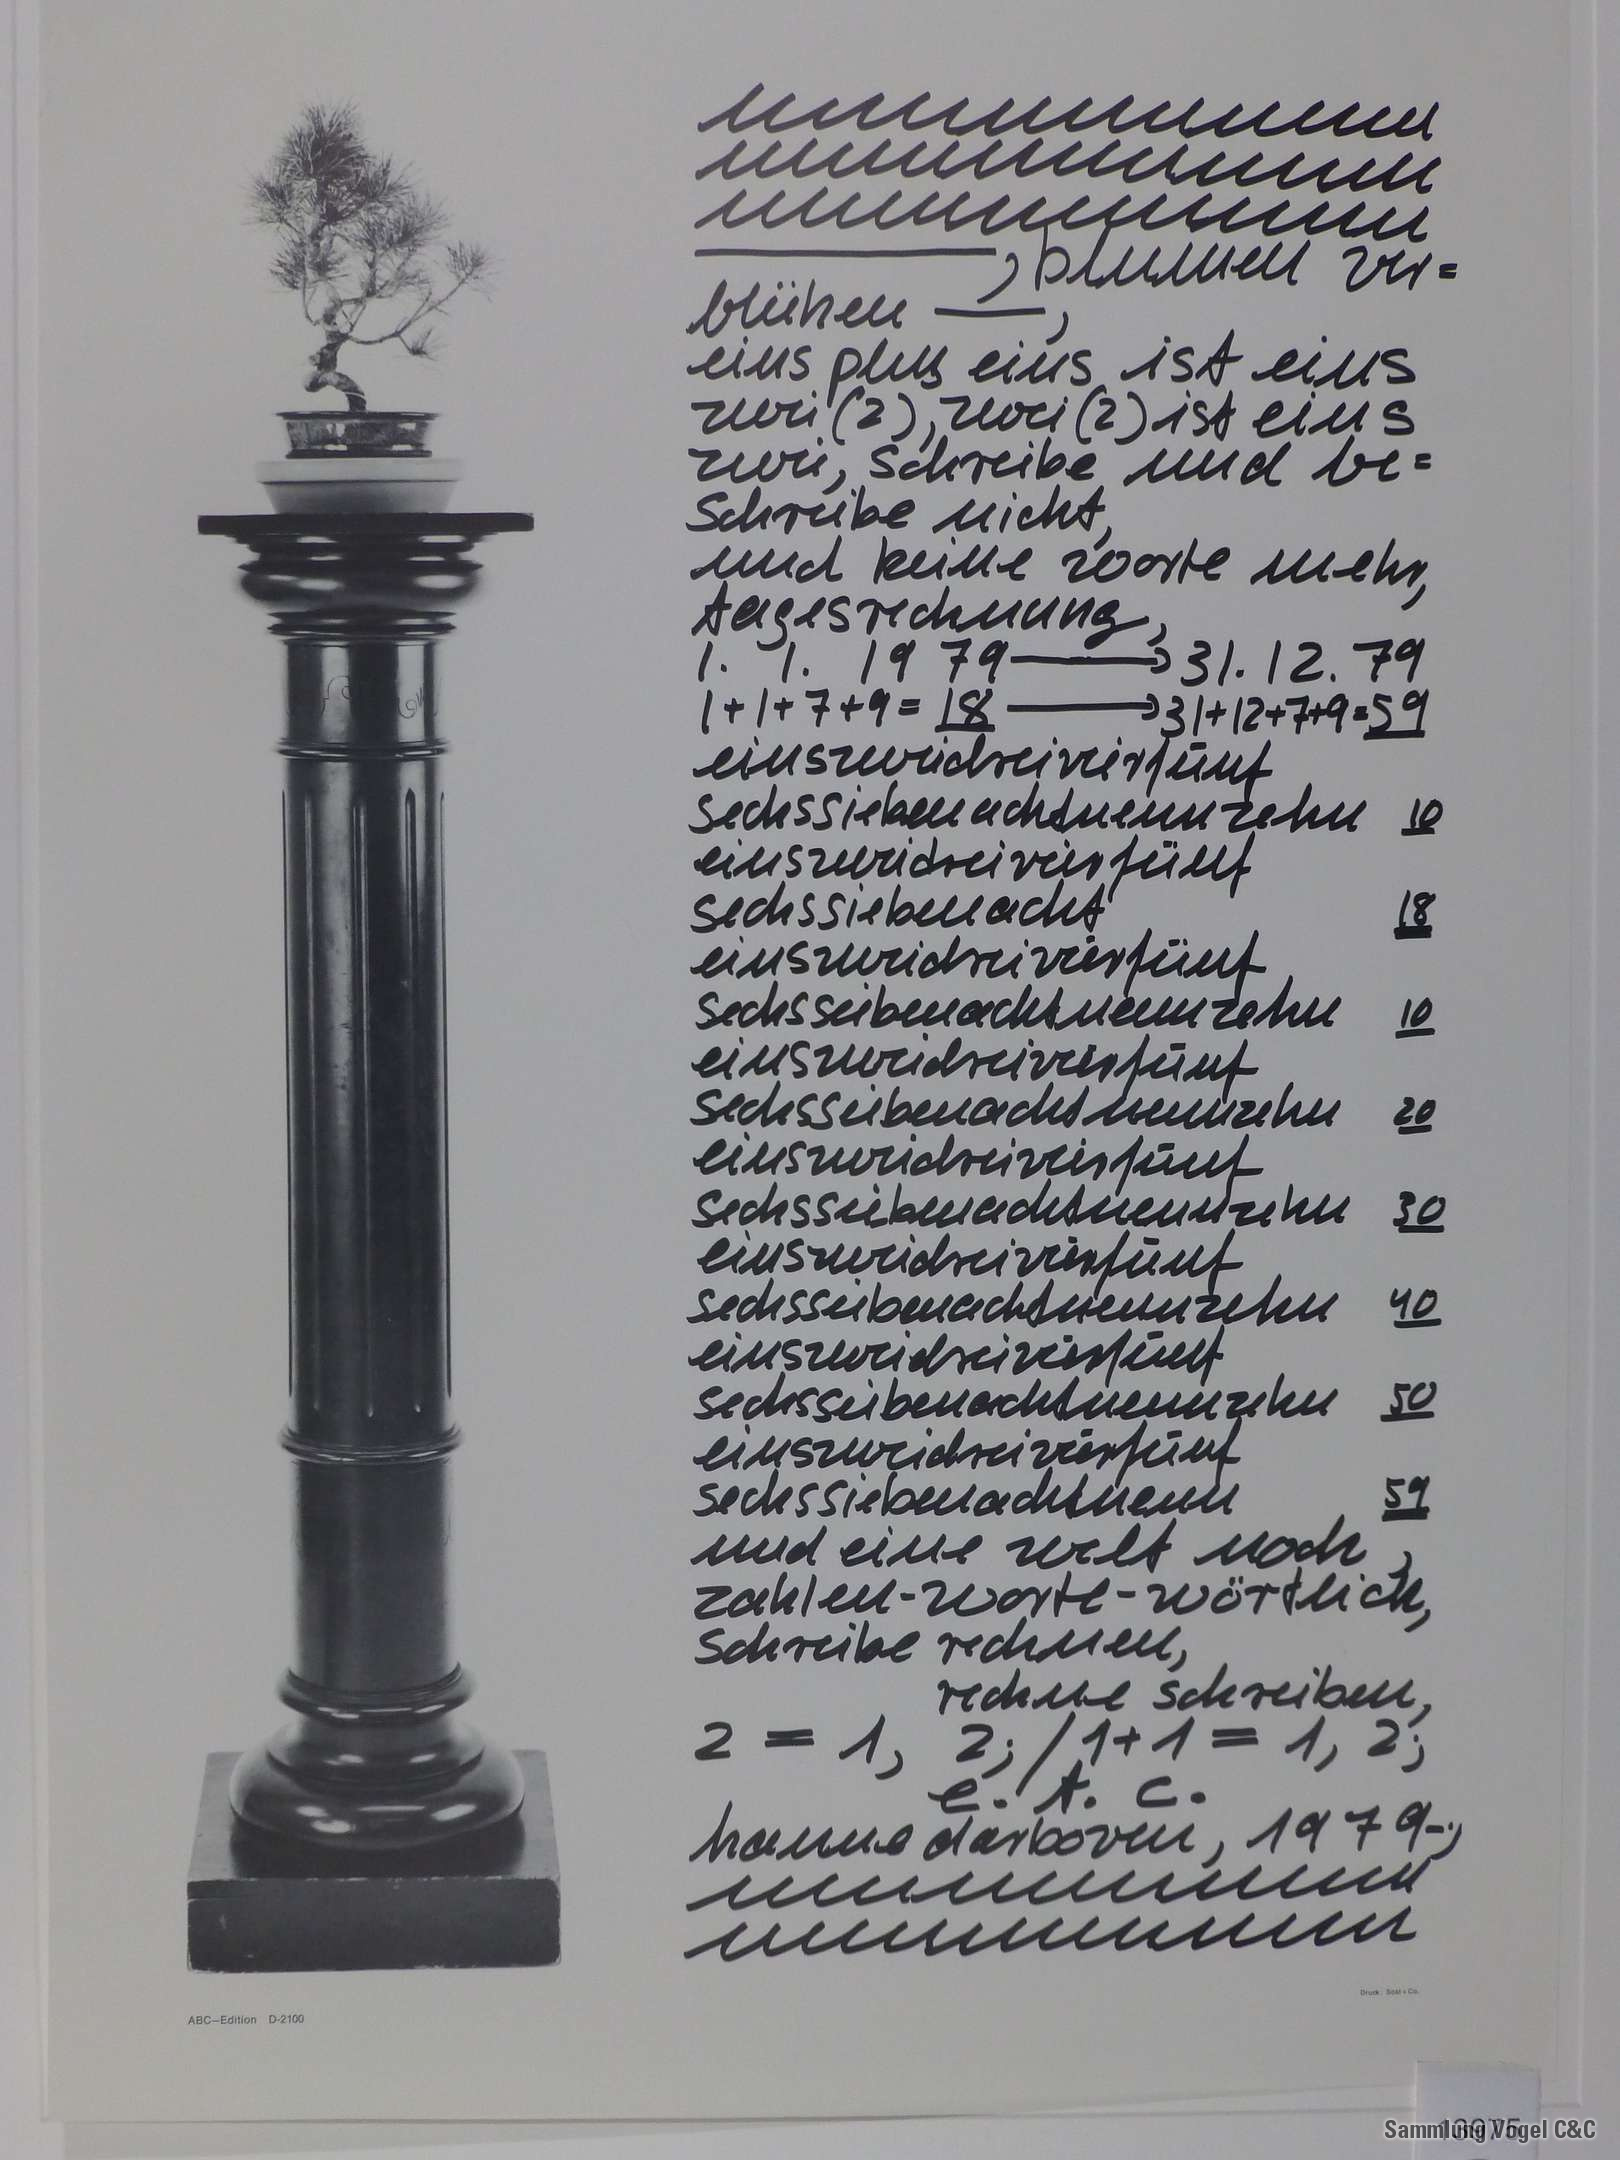 , blumen ver=
blühen —,
eins plus eins ist eins
zwei (2), zwei (2) ist eins
zwei, schreibe und be=
schreibe nicht,
und keine worte mehr,
tagesrechnung,
1. 1. 19 79 → 31. 12. 79
1+1+7+9= 18 → 31+12+7+9=59
einszweidreivierfünf
sechssiebenachtneunzehn 10
einszweidreivierfünf
sechssiebenacht 18
einszweidreivierfünf
sechsseibenachtneunzehn 10
einszweidreivierfünf
sechsseibenachtneunzehn 20
einszweidreivierfünf
sechsseibenachtneunzehn 30
einszweidreivierfünf
sechsseibenachtneunzehn 40
einszweidreivierfünf
sechsseibenachtneunzehn 50
einszweidreivierfünf
sechssiebenachtneun 59
und eine welt noch,
zahlen-worte-wörtlich,
schreibe rechnen,
rechne schreiben,
2 = 1, 2; / 1+1 = 1, 2;
e. t. c.
hanne darboven, 1979-.,
Druck: Sost+Co.
ABC—Edition D-2100
Sammlung Vogel C&C